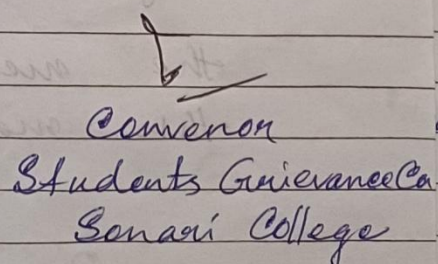 Convenor
Students Grievance Ca
Sonari College